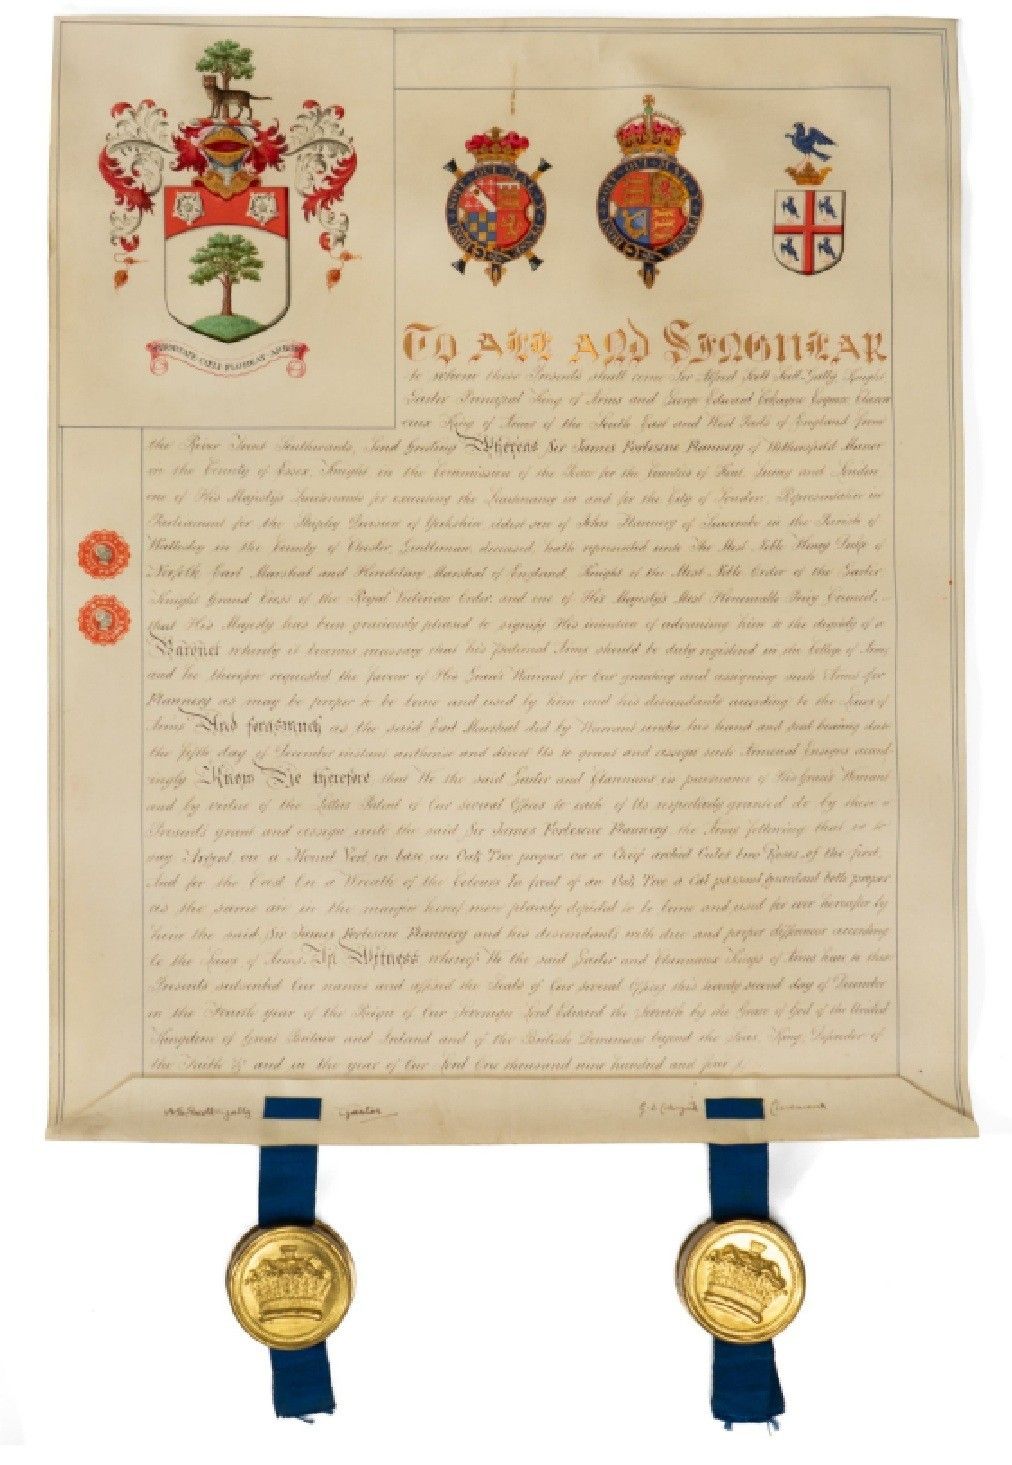 FORTAVIT CAELI FLUMINAX ARBOR
HONI SOIT QUI MAL Y PENSE
HONI SOIT QUI MAL Y PENSE
TO ALL AND SINGULAR
to whom these Presents shall come Sir Alfred Scott Scott-Gatty Knight
Garter Principal King of Arms and George Edward Cokayne Esquire Claren
ceux King of Arms of the South East and West Parts of England from
the River Trent Southwards, Send Greeting Whereas Sir James Fortescue Flannery of Wethersfield Manor
in the County of Essex, Knight in the Commission of the Peace for the Counties of Kent, Surrey and London
one of His Majesty's Lieutenants for executing the Lieutenancy in and for the City of London, Representative in
Parliament for the Shipley Division of Yorkshire eldest son of John Flannery of Seacombe in the Parish of
Wallasey in the County of Chester, Gentleman, deceased, hath represented unto The Most Noble Henry Duke of
Norfolk Earl Marshal and Hereditary Marshal of England, Knight of the Most Noble Order of the Garter
Knight Grand Cross of the Royal Victorian Order, and one of His Majesty's Most Honourable Privy Council,
that His Majesty has been graciously pleased to signify His intention of advancing him to the dignity of a
Baronet whereby it becomes necessary that his paternal Arms should be duly registered in the College of Arms
and he therefore requested the favour of His Grace's Warrant for Our granting and assigning such Arms for
Flannery as may be proper to be borne and used by him and his descendants according to the Laws of
Arms And forasmuch as the said Earl Marshal did by Warrant under his hand and seal bearing date
the fifth day of December instant authorize and direct Us to grant and assign such Armorial Ensigns accord
ingly Know Ye therefore that We the said Garter and Clarenceux in pursuance of His Grace's Warrant
and by virtue of the Letters Patent of Our several Offices to each of Us respectively granted do by these
Presents grant and assign unto the said Sir James Fortescue Flannery the Arms following that is to
say Argent on a Mount Vert in base an Oak Tree proper on a Chief arched Gules two Roses of the first,
And for the Crest On a Wreath of the Colours In front of an Oak Tree a Cat passant guardant both proper
as the same are in the margin hereof more plainly depicted to be borne and used for ever hereafter by
him the said Sir James Fortescue Flannery and his descendants with due and proper differences according
to the Laws of Arms. In Witness whereof We the said Garter and Clarenceux Kings of Arms have to these
Presents subscribed Our names and affixed the Seals of Our several Offices this twenty second day of December
in the Fourth year of the Reign of Our Sovereign Lord Edward the Seventh by the Grace of God of the United
Kingdom of Great Britain and Ireland and of the British Dominions beyond the Seas, King, Defender of
the Faith &c and in the year of Our Lord One thousand nine hundred and four
Garter
Clarenceux